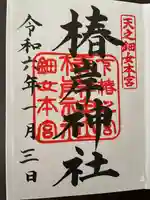 天之細女本宮
椿岸神社
細女本宮
令和六年一月三日